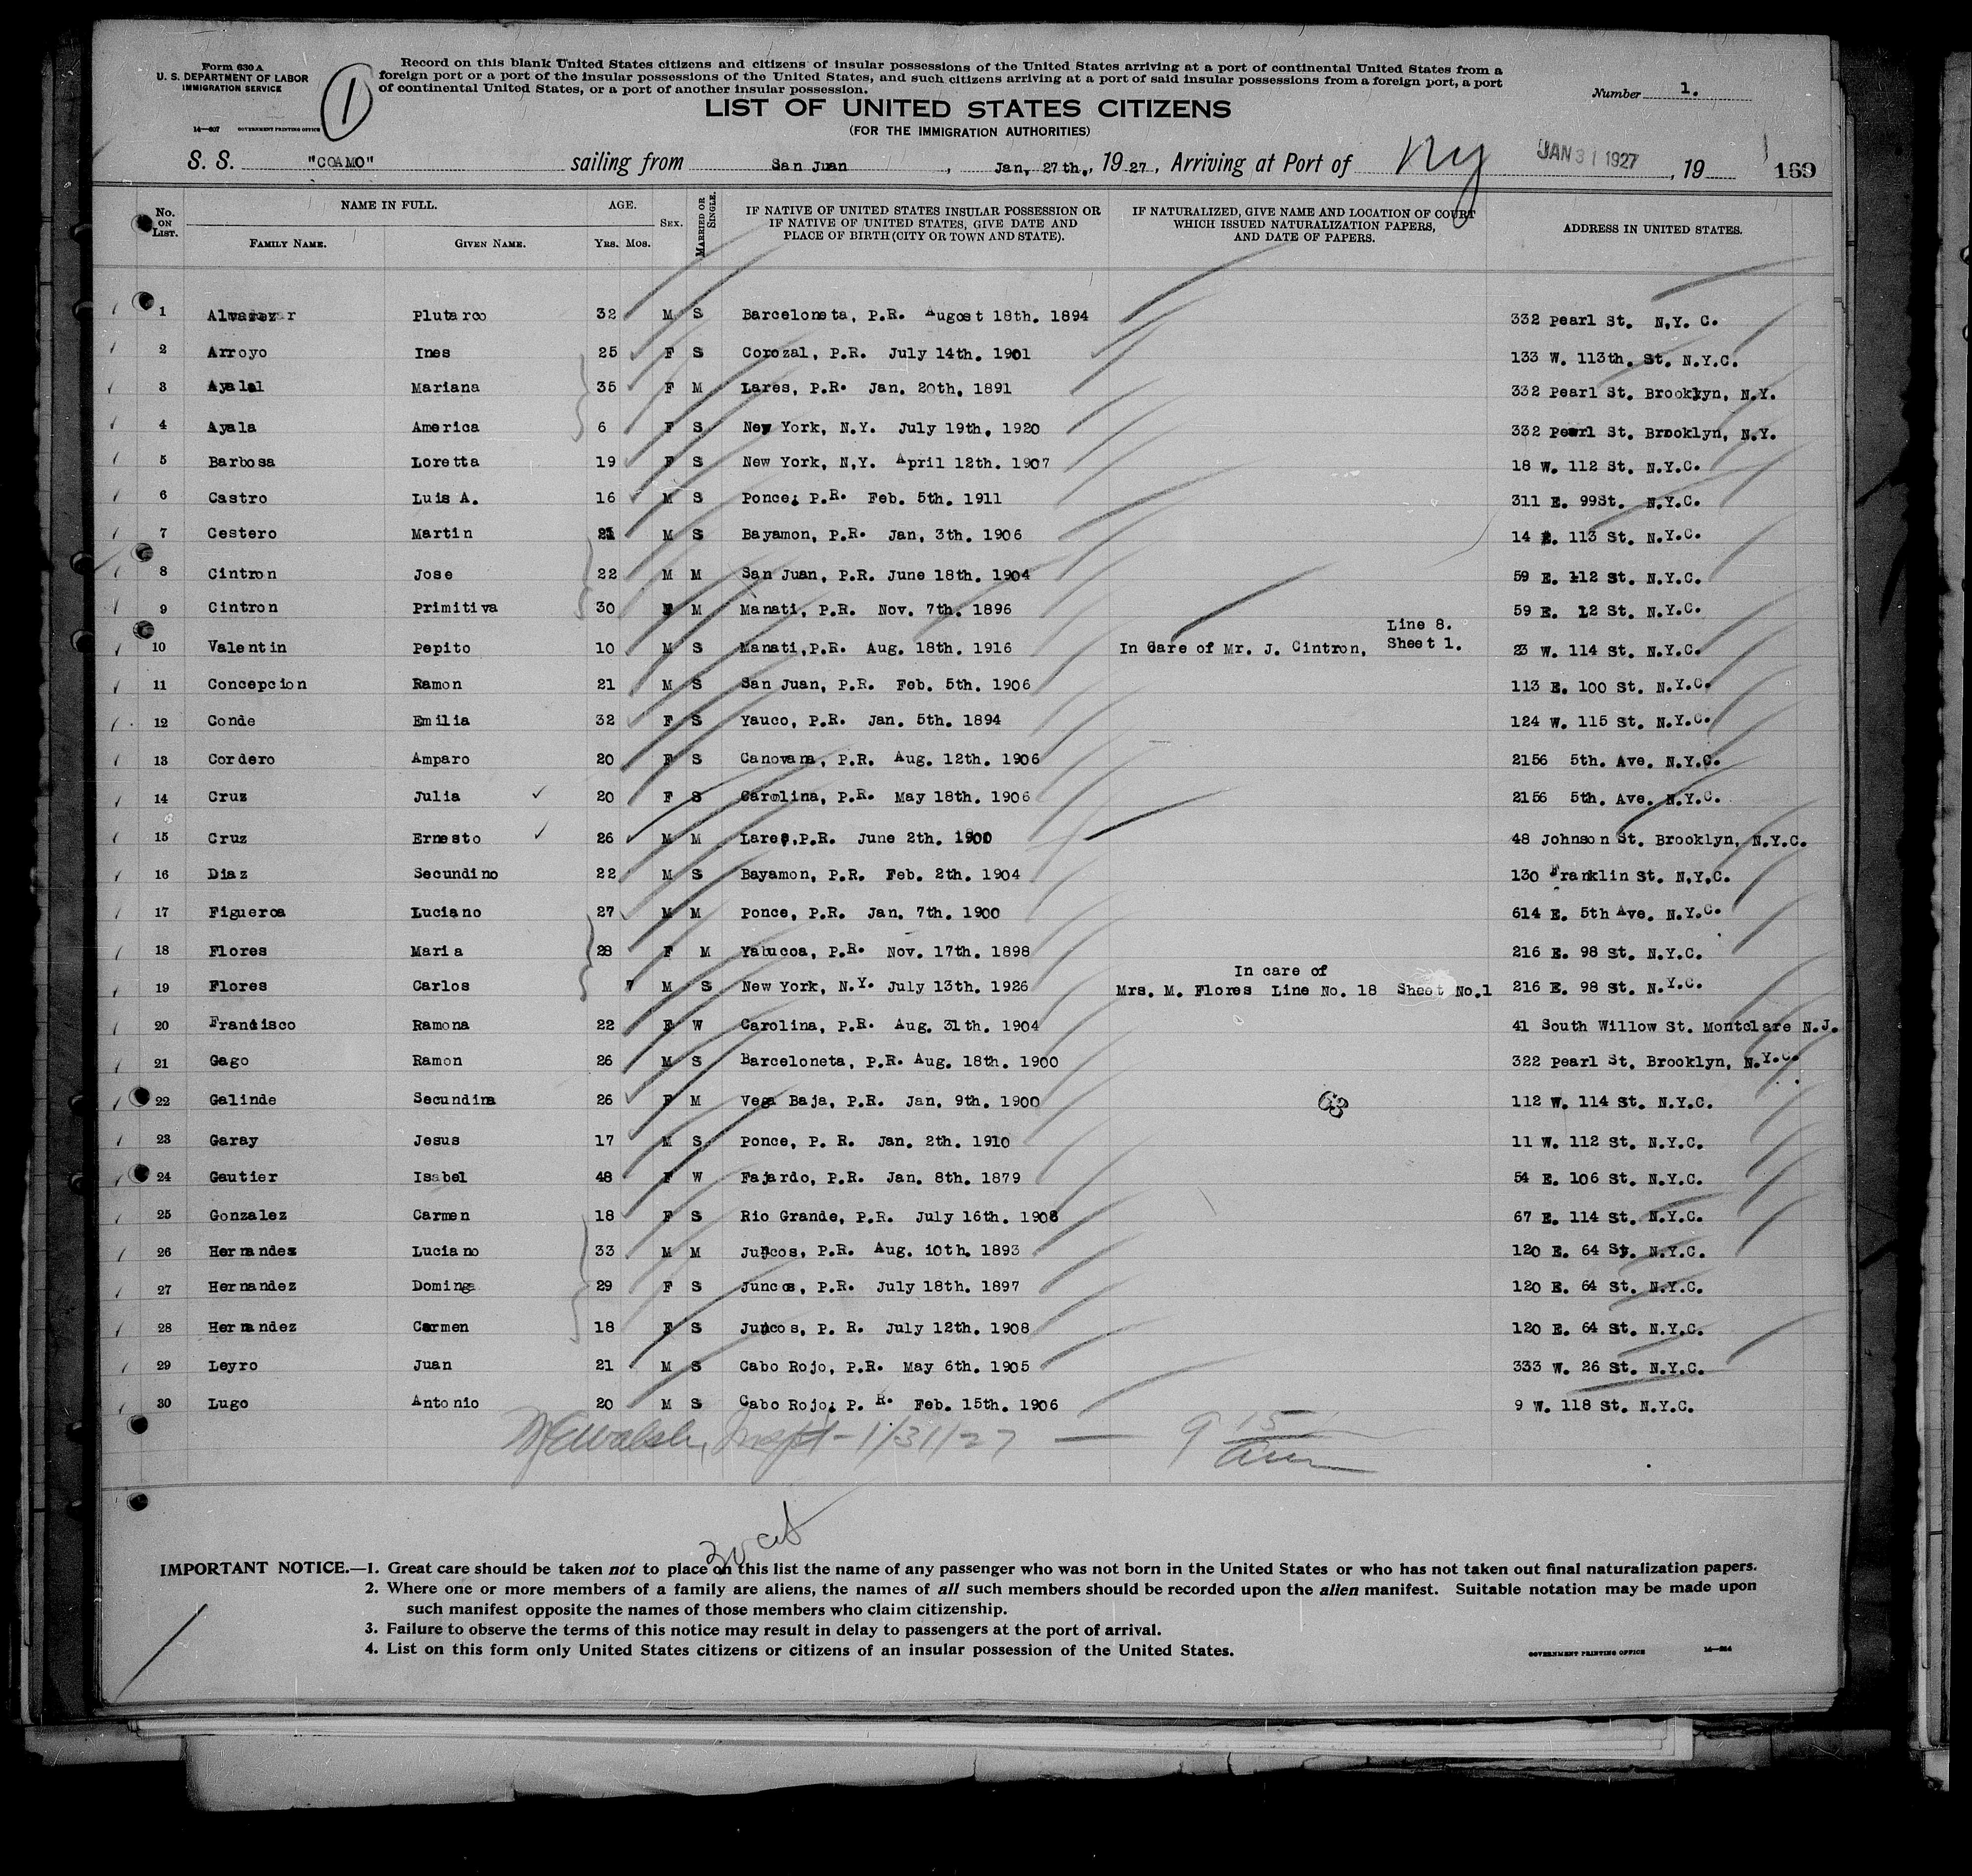 Form 630 A
U. S. DEPARTMENT OF LABOR
IMMIGRATION SERVICE
14—607 GOVERNMENT PRINTING OFFICE
1
Record on this blank United States citizens and citizens of insular possessions of the United States arriving at a port of continental United States from a
foreign port or a port of the insular possessions of the United States, and such citizens arriving at a port of said insular possessions from a foreign port, a port
of continental United States, or a port of another insular possession.
Number 1.
LIST OF UNITED STATES CITIZENS
(FOR THE IMMIGRATION AUTHORITIES)
S. S. "COAMO" sailing from San Juan, Jan, 27th., 1927, Arriving at Port of Ny JAN 31 1927, 19 169
No. ON LIST. NAME IN FULL. AGE. SEX. MARRIED OR SINGLE. IF NATIVE OF UNITED STATES INSULAR POSSESSION OR IF NATIVE OF UNITED STATES, GIVE DATE AND PLACE OF BIRTH (CITY OR TOWN AND STATE). IF NATURALIZED, GIVE NAME AND LOCATION OF COURT WHICH ISSUED NATURALIZATION PAPERS, AND DATE OF PAPERS. ADDRESS IN UNITED STATES.
FAMILY NAME. GIVEN NAME. YRS. MOS.
1 Alvarez Plutarco 32 M S Barceloneta, P.R. August 18th. 1894 332 Pearl St. N.Y. C.
2 Arroyo Ines 25 F S Corozal, P.R. July 14th. 1901 133 W. 113th. St. N.Y.C.
3 Ayala Mariana 35 F M Lares, P.R. Jan. 20th, 1891 332 Pearl St. Brooklyn, N.Y.
4 Ayala America 6 F S New York, N.Y. July 19th, 1920 332 Pearl St. Brooklyn, N.Y.
5 Barbosa Loretta 19 F S New York, N,Y. April 12th. 1907 18 W. 112 St. N.Y.C.
6 Castro Luis A. 16 M S Ponce, P.R. Feb. 5th. 1911 311 E. 99St. N.Y.C.
7 Cestero Martin 21 M S Bayamon, P.R. Jan, 3th. 1906 14 E. 113 St. N.Y.C.
8 Cintron Jose 22 M M San Juan, P.R. June 18th. 1904 59 E. 112 St. N.Y.C.
9 Cintron Primitiva 30 F M Manati, P.R. Nov. 7th. 1896 59 E. 12 St. N.Y.C.
10 Valentin Pepito 10 M S Manati,P.R. Aug. 18th. 1916 In Care of Mr. J. Cintron, Line 8. Sheet 1. 23 W. 114 St. N.Y.C.
11 Concepcion Ramon 21 M S San Juan, P.R. Feb. 5th. 1906 113 E. 100 St. N.Y.C.
12 Conde Emilia 32 F S Yauco, P.R. Jan. 5th. 1894 124 W. 115 St. N.Y.C.
13 Cordero Amparo 20 F S Canovana, P.R. Aug. 12th. 1906 2156 5th. Ave. N.Y.C.
14 Cruz Julia 20 F S Carolina, P.R. May 18th. 1906 2156 5th. Ave. N.Y.C.
15 Cruz Ernesto 26 M M Lares,P.R. June 2th. 1900 48 Johnson St. Brooklyn, N.Y.C.
16 Diaz Secundino 22 M S Bayamon, P.R. Feb. 2th. 1904 130 Franklin St. N.Y.C.
17 Figueroa Luciano 27 M M Ponce, P.R. Jan. 7th. 1900 614 E. 5th Ave. N.Y.C.
18 Flores Maria 28 F M Yabucoa, P.R. Nov. 17th. 1898 216 E. 98 St. N.Y.C.
19 Flores Carlos 7 M S New York, N.Y. July 13th. 1926 In care of Mrs. M. Flores Line No. 18 Sheet No.1 216 E. 98 St. N.Y.C.
20 Francisco Ramona 22 F W Carolina, P.R. Aug. 31th. 1904 41 South Willow St. Montclare N.J.
21 Gago Ramon 26 M S Barceloneta, P.R. Aug. 18th. 1900 322 Pearl St. Brooklyn, N.Y.C.
22 Galinde Secundina 26 F M Vega Baja, P.R. Jan. 9th. 1900 63 112 W. 114 St. N.Y.C.
23 Garay Jesus 17 M S Ponce, P. R. Jan. 2th. 1910 11 W. 112 St. N.Y.C.
24 Gautier Isabel 48 F W Fajardo, P.R. Jan. 8th. 1879 54 E. 106 St. N.Y.C.
25 Gonzalez Carmen 18 F S Rio Grande, P.R. July 16th. 1908 67 E. 114 St. N.Y.C.
26 Hernandes Luciano 33 M M Juncos, P.R. Aug. 10th. 1893 120 E. 64 St. N.Y.C.
27 Hernandez Dominga 29 F S Juncos, P.R. July 18th. 1897 120 E. 64 St. N.Y.C.
28 Hernandez Carmen 18 F S Juncos, P. R. July 12th. 1908 120 E. 64 St. N.Y.C.
29 Leyro Juan 21 M S Cabo Rojo, P.R. May 6th. 1905 333 W. 26 St. N.Y.C.
30 Lugo Antonio 20 M S Cabo Rojo, P. R. Feb. 15th. 1906 9 W. 118 St. N.Y.C.
Walsh, Inspt - 1/31/27 — 9 15 am
30 cit
IMPORTANT NOTICE.—1. Great care should be taken not to place on this list the name of any passenger who was not born in the United States or who has not taken out final naturalization papers.
2. Where one or more members of a family are aliens, the names of all such members should be recorded upon the alien manifest. Suitable notation may be made upon
such manifest opposite the names of those members who claim citizenship.
3. Failure to observe the terms of this notice may result in delay to passengers at the port of arrival.
4. List on this form only United States citizens or citizens of an insular possession of the United States.
GOVERNMENT PRINTING OFFICE